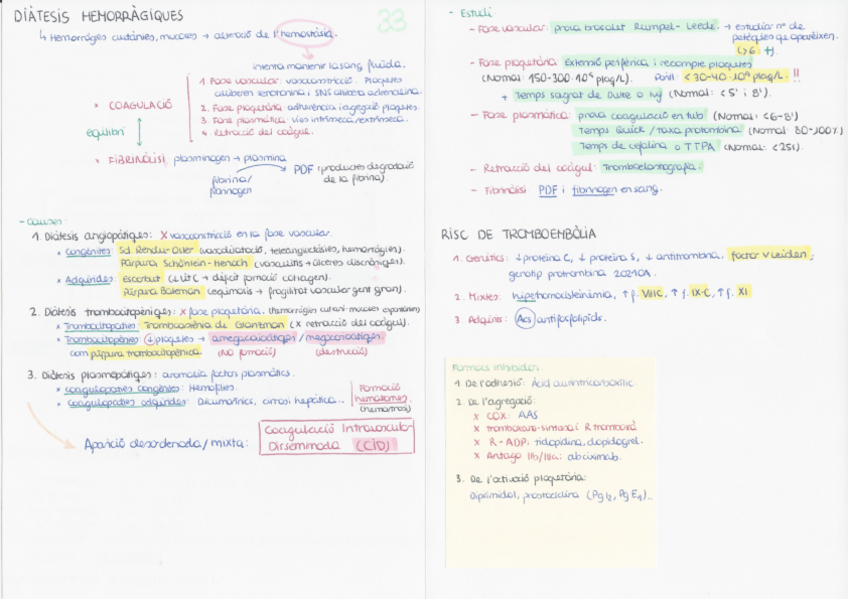 DIÀTESIS HEMORRÀGIQUES
33
↳ Hemorràgies cutànies, mucoses → alteració de l'hemostàsia.
intenta mantenir la sang fluida.
* COAGULACIÓ
equilibri
1. Fase vascular: vasoconstricció. Plaquetes
alliberen serotonina i SNS allibera adrenalina.
2. Fase plaquetària: adherència i agregació plaquetes.
3. Fase plasmàtica: vies intrínseca/extrínseca.
4. Retracció del coàgul.
* FIBRINÒLISI plasminogen → plasmina
fibrina/
fibrinogen
PDF (productes degradació
de la fibrina).
- Causes:
1. Diàtesis angiopàtiques: X vasoconstricció en la fase vascular.
* Congènites: Sd. Rendu-Osler (vasodilatació, teleangiectàsies, hemorràgies).
Púrpura Schönlein-Henoch (vasculitis + úlceres discròmiques).
* Adquirides: Escorbut (↓Vit C → dèficit formació colàgen).
Púrpura Bateman (equimosis → fragilitat vascular gent gran).
2. Diàtesis trombocitopèniques: X fase plaquetària. (hemorràgies cutani-mucoses espontànies)
* Trombocitopaties: Tromboastènia de Glanzman (X retracció del coàgul).
* Trombocitopènies: ↓ plaquetes → amegacariocítiques / megacariocítiques
com púrpura trombocitopènica. (No formació) (destrucció)
3. Diàtesis plasmopàtiques: anomalia factors plasmàtics.
* Coagulopaties congènites: Hemofílies.
* Coagulopaties adquirides: Dicumarínics, cirrosi hepàtica...
Formació
hematomes.
(hemartros)
Aparició desordenada/mixta:
Coagulació Intravascular
Disseminada (CID)
- Estudi
- Fase vascular: prova braçalet Rumpel-Leede. → estudiar nº de
petèquies que apareixen.
(>6: +).
- Fase plaquetària: Extensió perifèrica i recompte plaquetes
(Normal: 150-300·10⁹ plaq/L). Perill: <30-40·10⁹ plaq/L. !!
+ Temps sagnat de Duke o Ivy (Normal: <5' i 8').
- Fase plasmàtica: prova coagulació en tub (Normal: <6-8')
Temps Quick / taxa protombina (Normal: 80-100%)
Temps de cefalina o TTPA (Normal: <25s).
- Retracció del coàgul: Tromboelastografia.
- Fibrinòlisi: PDF i fibrinogen en sang.
RISC DE TROMBOEMBÒLIA
1. Genètics: ↓ proteïna C, ↓ proteïna S, ↓ antitrombina, factor V Leiden,
genotip protrombina 20210A.
2. Mixtes: hiperhomocisteinèmia, ↑ f. VIIIC, ↑ f. IX-C, ↑ f. XI
3. Adquirits: Acs antifosfolípids.
Fàrmacs inhibidors:
1. De l'adhesió: Àcid aurintricarboxílic.
2. De l'agregació:
* COX: AAS
* tromboxano-sintasa i R tromboxà
* R-ADP: ticlopidina, clopidogrel.
* Antago IIb/IIIa: abciximab.
3. De l'activació plaquetària:
Dipiridamol, prostaciclina (PgI₂, PgE₁)...